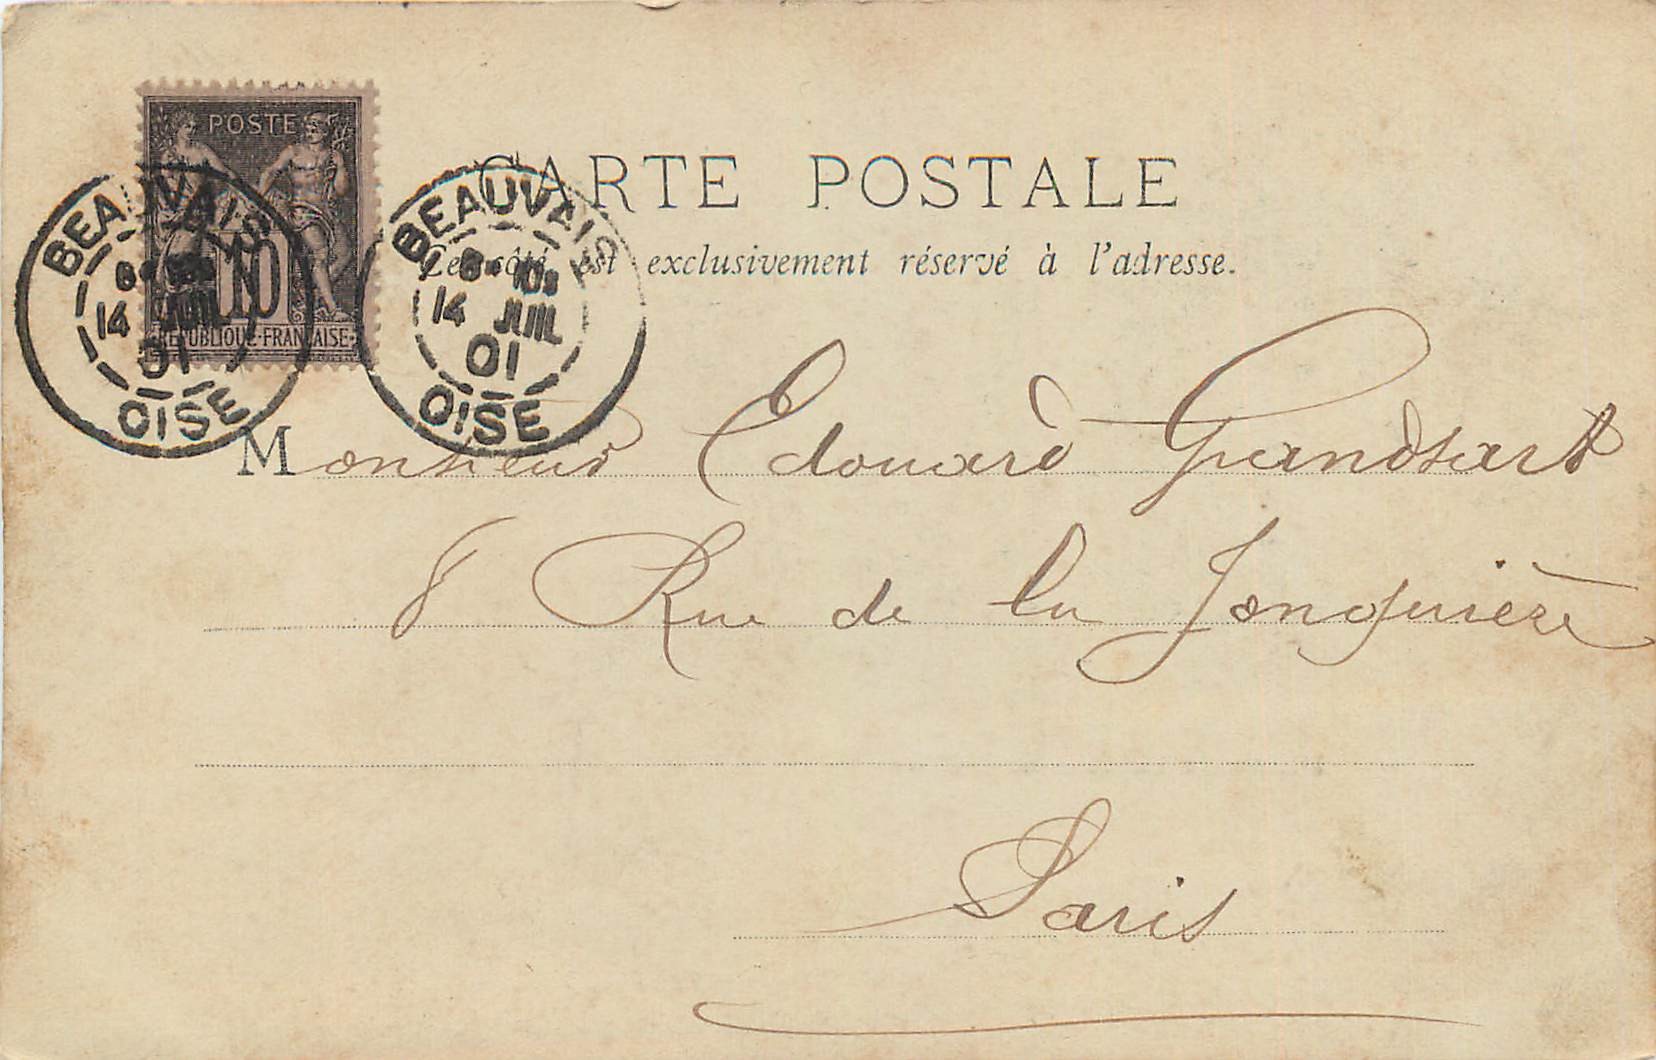 POSTE
10
REPUBLIQUE·FRANÇAISE
BEAUVAIS
14 JUIL
01
OISE
BEAUVAIS
14 JUIL
01
OISE
CARTE POSTALE
Ce côté est exclusivement réservé à l'adresse.
Monsieur Edouard Grandsart
8 Rue de la Jonquière
Paris